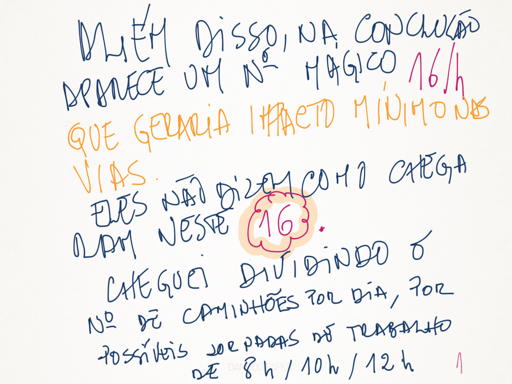 ALÉM DISSO, NA CONCLUSÃO
APARECE UM Nº MÁGICO 16/h
QUE GERARIA IMPACTO MÍNIMO NAS
VIAS.
ELES NÃO DIZEM COMO CHEGA
RAM NESTE 16.
CHEGUEI DIVIDINDO O
Nº DE CAMINHÕES POR DIA, POR
POSSÍVEIS JORNADAS DE TRABALHO
DE 8h / 10h / 12h
1